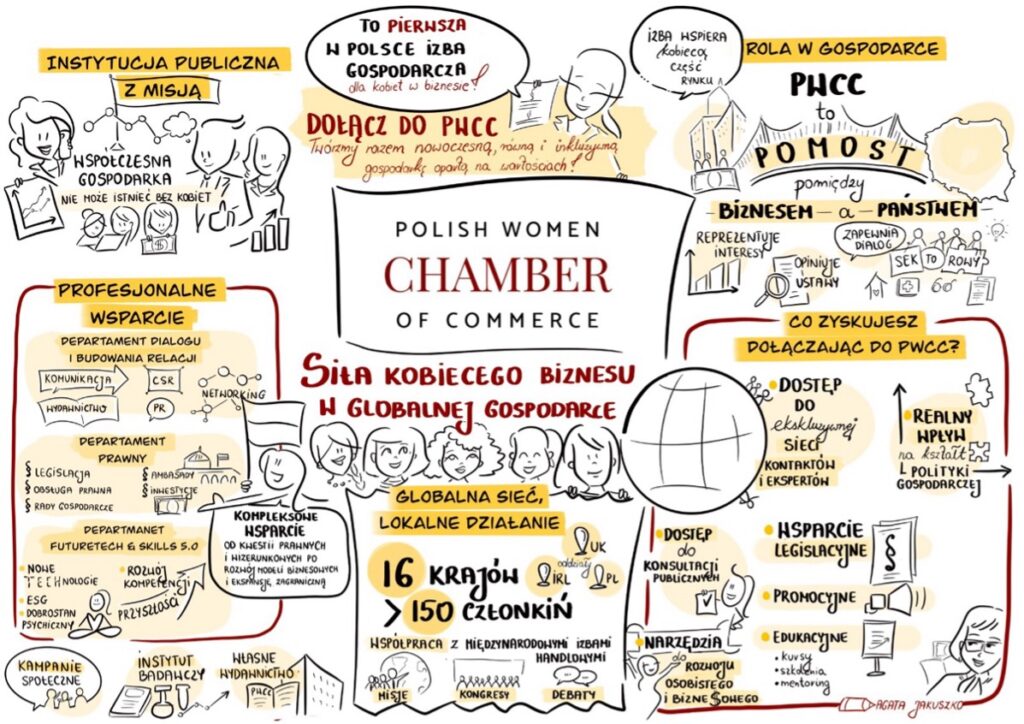 INSTYTUCJA PUBLICZNA
Z MISJĄ
WSPÓŁCZESNA
GOSPODARKA
NIE MOŻE ISTNIEĆ BEZ KOBIET
$
TO PIERWSZA
W POLSCE IZBA
GOSPODARCZA
dla kobiet w biznesie!
DOŁĄCZ DO PWCC
Twórzmy razem nowoczesną, równą i inkluzywną
gospodarkę opartą na wartościach!
IZBA WSPIERA
kobiecą
CZĘŚĆ
RYNKU
ROLA W GOSPODARCE
PWCC
to
POMOST
pomiędzy
BIZNESEM - a - PAŃSTWEM
REPREZENTUJE
INTERESY
OPINIUJE
USTAWY
§
ZAPEWNIA
DIALOG
SEK TO ROWY
POLISH WOMEN
CHAMBER
OF COMMERCE
SIŁA KOBIECEGO BIZNESU
W GLOBALNEJ GOSPODARCE
PROFESJONALNE
WSPARCIE
DEPARTAMENT DIALOGU
I BUDOWANIA RELACJI
KOMUNIKACJA
CSR
NETWORKING
WYDAWNICTWO
PR
DEPARTAMENT
PRAWNY
§ LEGISLACJA
§ OBSŁUGA PRAWNA
§ RADY GOSPODARCZE
§ AMBASADY
§ INWESTYCJE
DEPARTMANET
FUTURETECH & SKILLS 5.0
• NOWE
TECHNOLOGIE
• ESG
• DOBROSTAN
PSYCHICZNY
• ROZWÓJ
KOMPETENCJI
PRZYSZŁOŚCI
KOMPLEKSOWE
WSPARCIE
OD KWESTII PRAWNYCH
I WIZERUNKOWYCH PO
ROZWÓJ MODELI BIZNESOWYCH
I EKSPANSJĘ ZAGRANICZNĄ
KAMPANIE
SPOŁECZNE
INSTYTUT
BADAWCZY
WŁASNE
WYDAWNICTWO
PWCC
GLOBALNA SIEĆ,
LOKALNE DZIAŁANIE
16 KRAJÓW
oddziały
UK
IRL
PL
> 150 CZŁONKIŃ
WSPÓŁPRACA Z MIĘDZYNARODOWYMI IZBAMI
HANDLOWYMI
MISJE
KONGRESY
DEBATY
CO ZYSKUJESZ
DOŁĄCZAJĄC DO PWCC?
• DOSTĘP
DO
ekskluzywnej
SIECI
KONTAKTÓW
I EKSPERTÓW
• REALNY
WPŁYW
na kształt
POLITYKI
GOSPODARCZEJ
• DOSTĘP
do
KONSULTACJI
PUBLICZNYCH
• WSPARCIE
LEGISLACYJNE
§
• PROMOCYJNE
• EDUKACYJNE
• kursy
• szkolenia
• mentoring
• NARZĘDZIA
do
ROZWOJU
OSOBISTEGO
I BIZNESOWEGO
AGATA JAKUSZKO